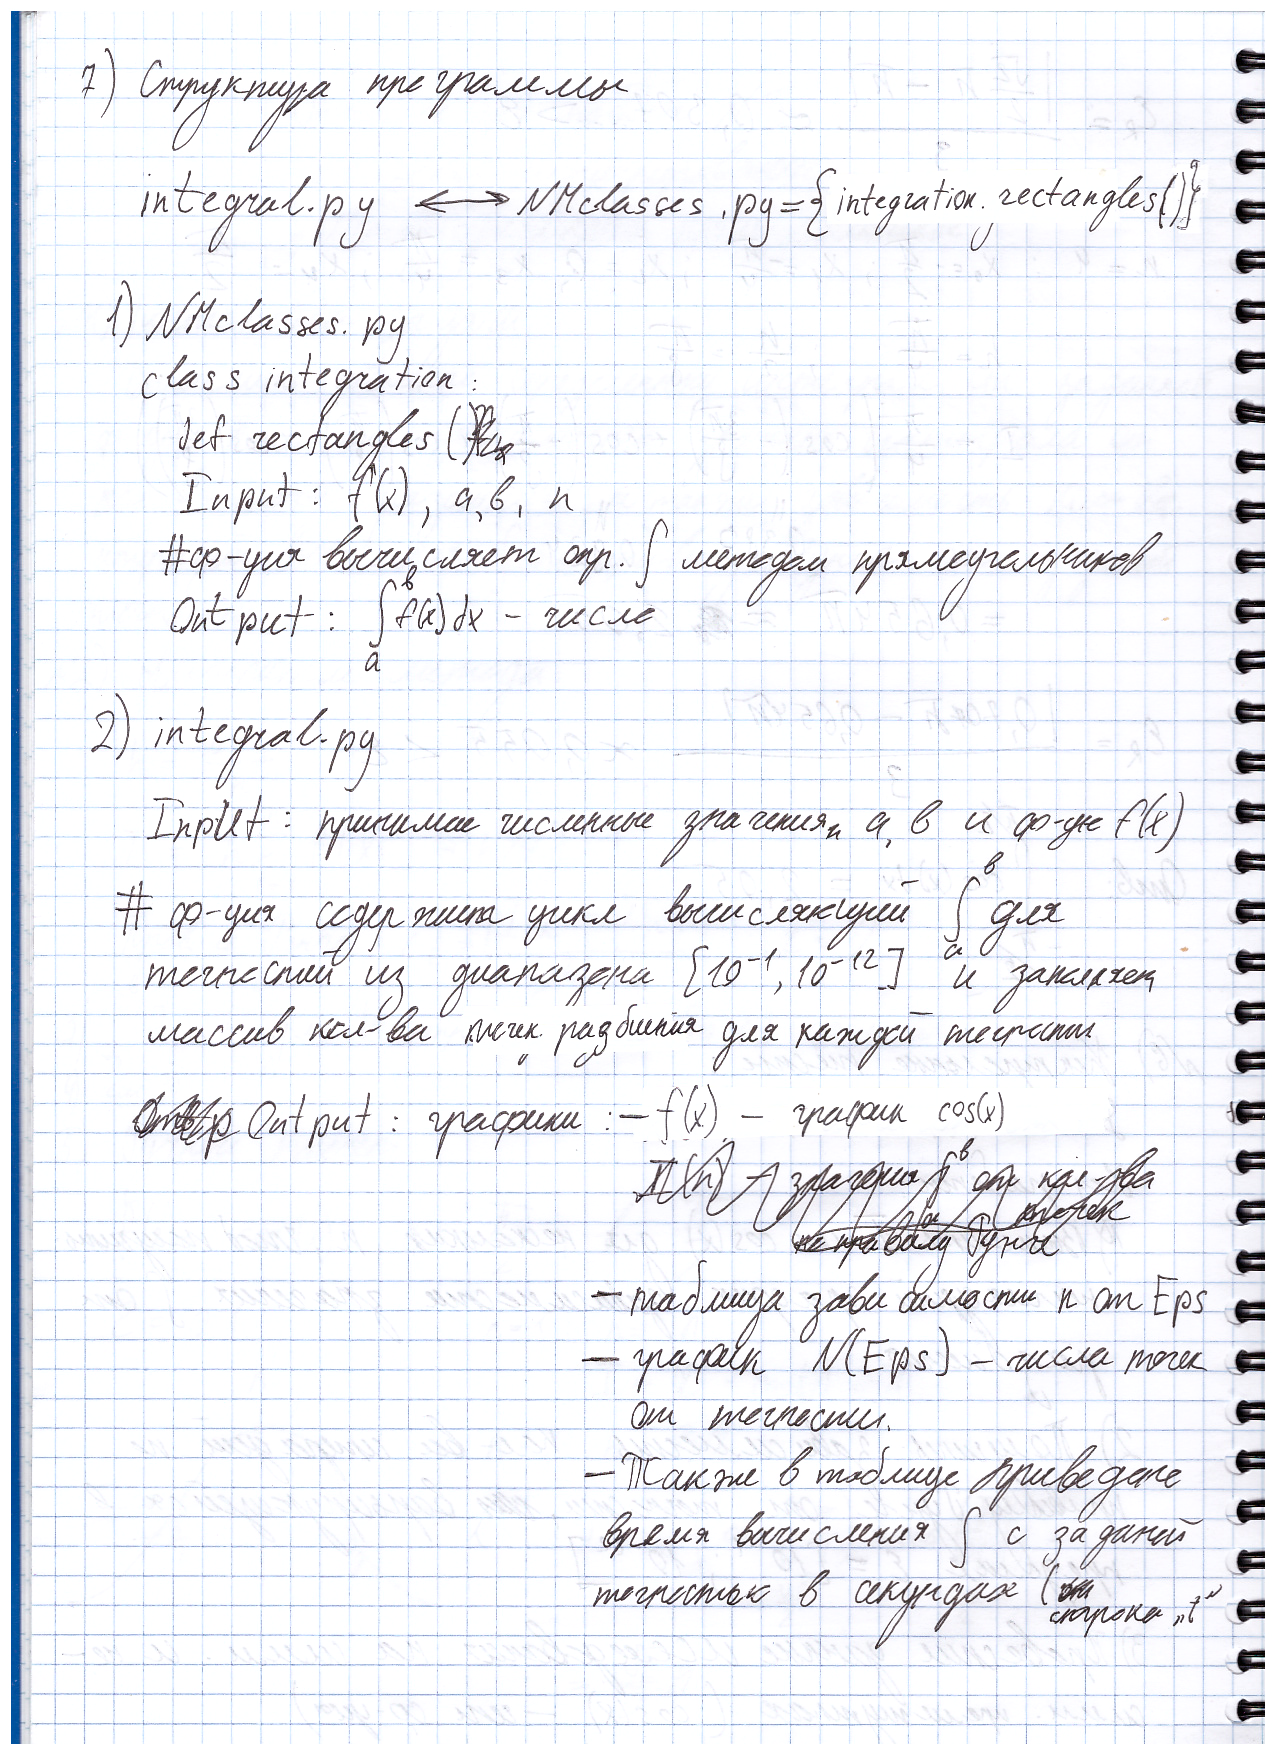 7) Структура программы
integral.py ⟷ NMclasses.py = {integration.rectangles()}
1) NMclasses.py
class integration:
def rectangles()
Input: f(x), a, b, n
#ф-ция вычисляет опр. ∫ методом прямоугольников
Output: ∫ₐᵇ f(x)dx - число
2) integral.py
Input: принимае численные значения, a, b и ф-ую f(x)
# ф-ция содержит цикл вычисляющий ∫ₐᵇ для
точностей из диапазона [10⁻¹, 10⁻¹²] и заполняет
массив кол-ва точек разбиения для каждой точности
Output: графики: - f(x) - график cos(x)
значения ∫ₐᵇ от кол-ва
точек
по правилу Рунге
- таблица зависимости n от Eps
- график N(Eps) - числа точек
от точности.
- Также в таблице приведено
время вычисления ∫ с заданой
точностью в секундах (
строка „t"